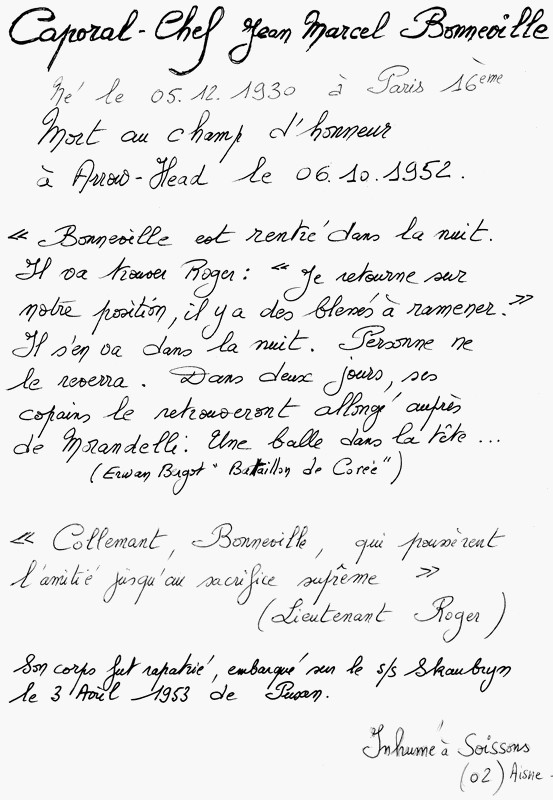 Caporal-Chef Jean Marcel Bonneville
Né le 05.12.1930 à Paris 16ème
Mort au champ d'honneur
à Arrow-Head le 06.10.1952.
« Bonneville est rentré dans la nuit.
Il va trouver Roger : “ Je retourne sur
notre position, il y a des blessés à ramener.”»
Il s'en va dans la nuit. Personne ne
le reverra. Dans deux jours, ses
copains le retrouveront allongé auprès
de Morandelli. Une balle dans la tête ...
(Erwan Bergot “ Bataillon de Corée”)
« Collemant, Bonneville, qui poussèrent
l'amitié jusqu'au sacrifice suprême »
(Lieutenant Roger)
Son corps fut rapatrié, embarqué sur le s/s Skaubryn
le 3 Avril 1953 de Pusan.
Inhumé à Soissons
(02) Aisne.